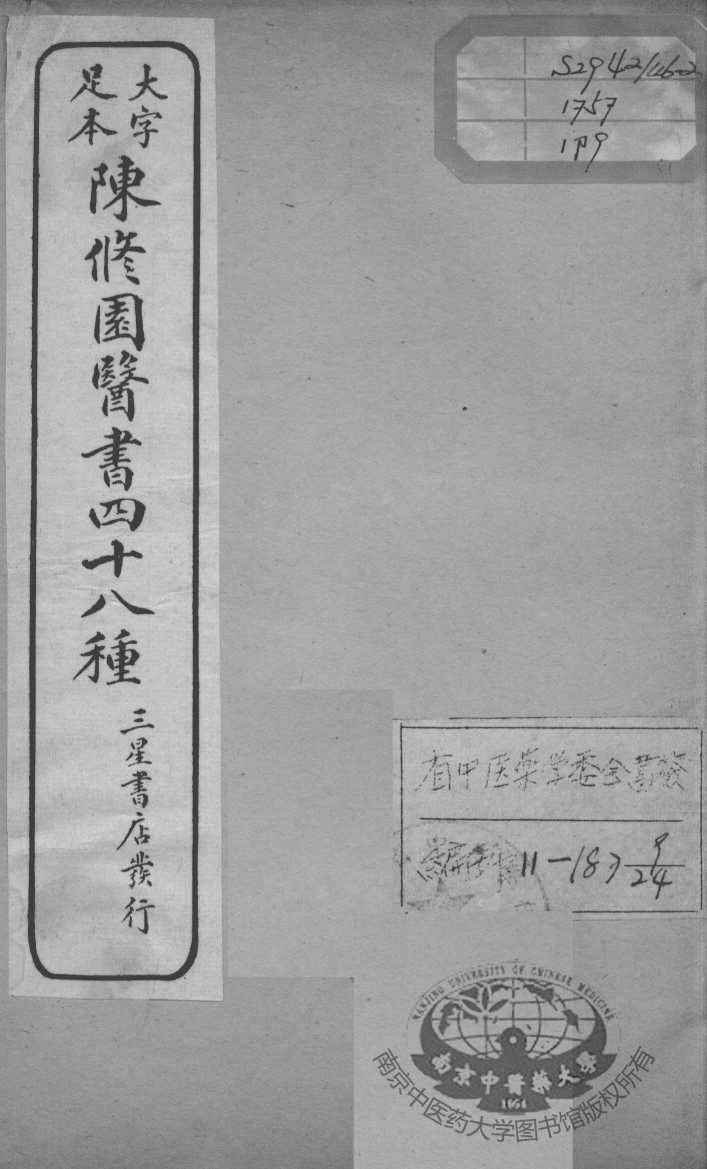 大字
足本
陳修園醫書四十八種
三星書店發行
1757
省中医药学委会
11-187 9/24
NANJING UNIVERSITY OF CHINESE MEDICINE
南京中醫藥大學
1954
南京中医药大学图书馆版权所有